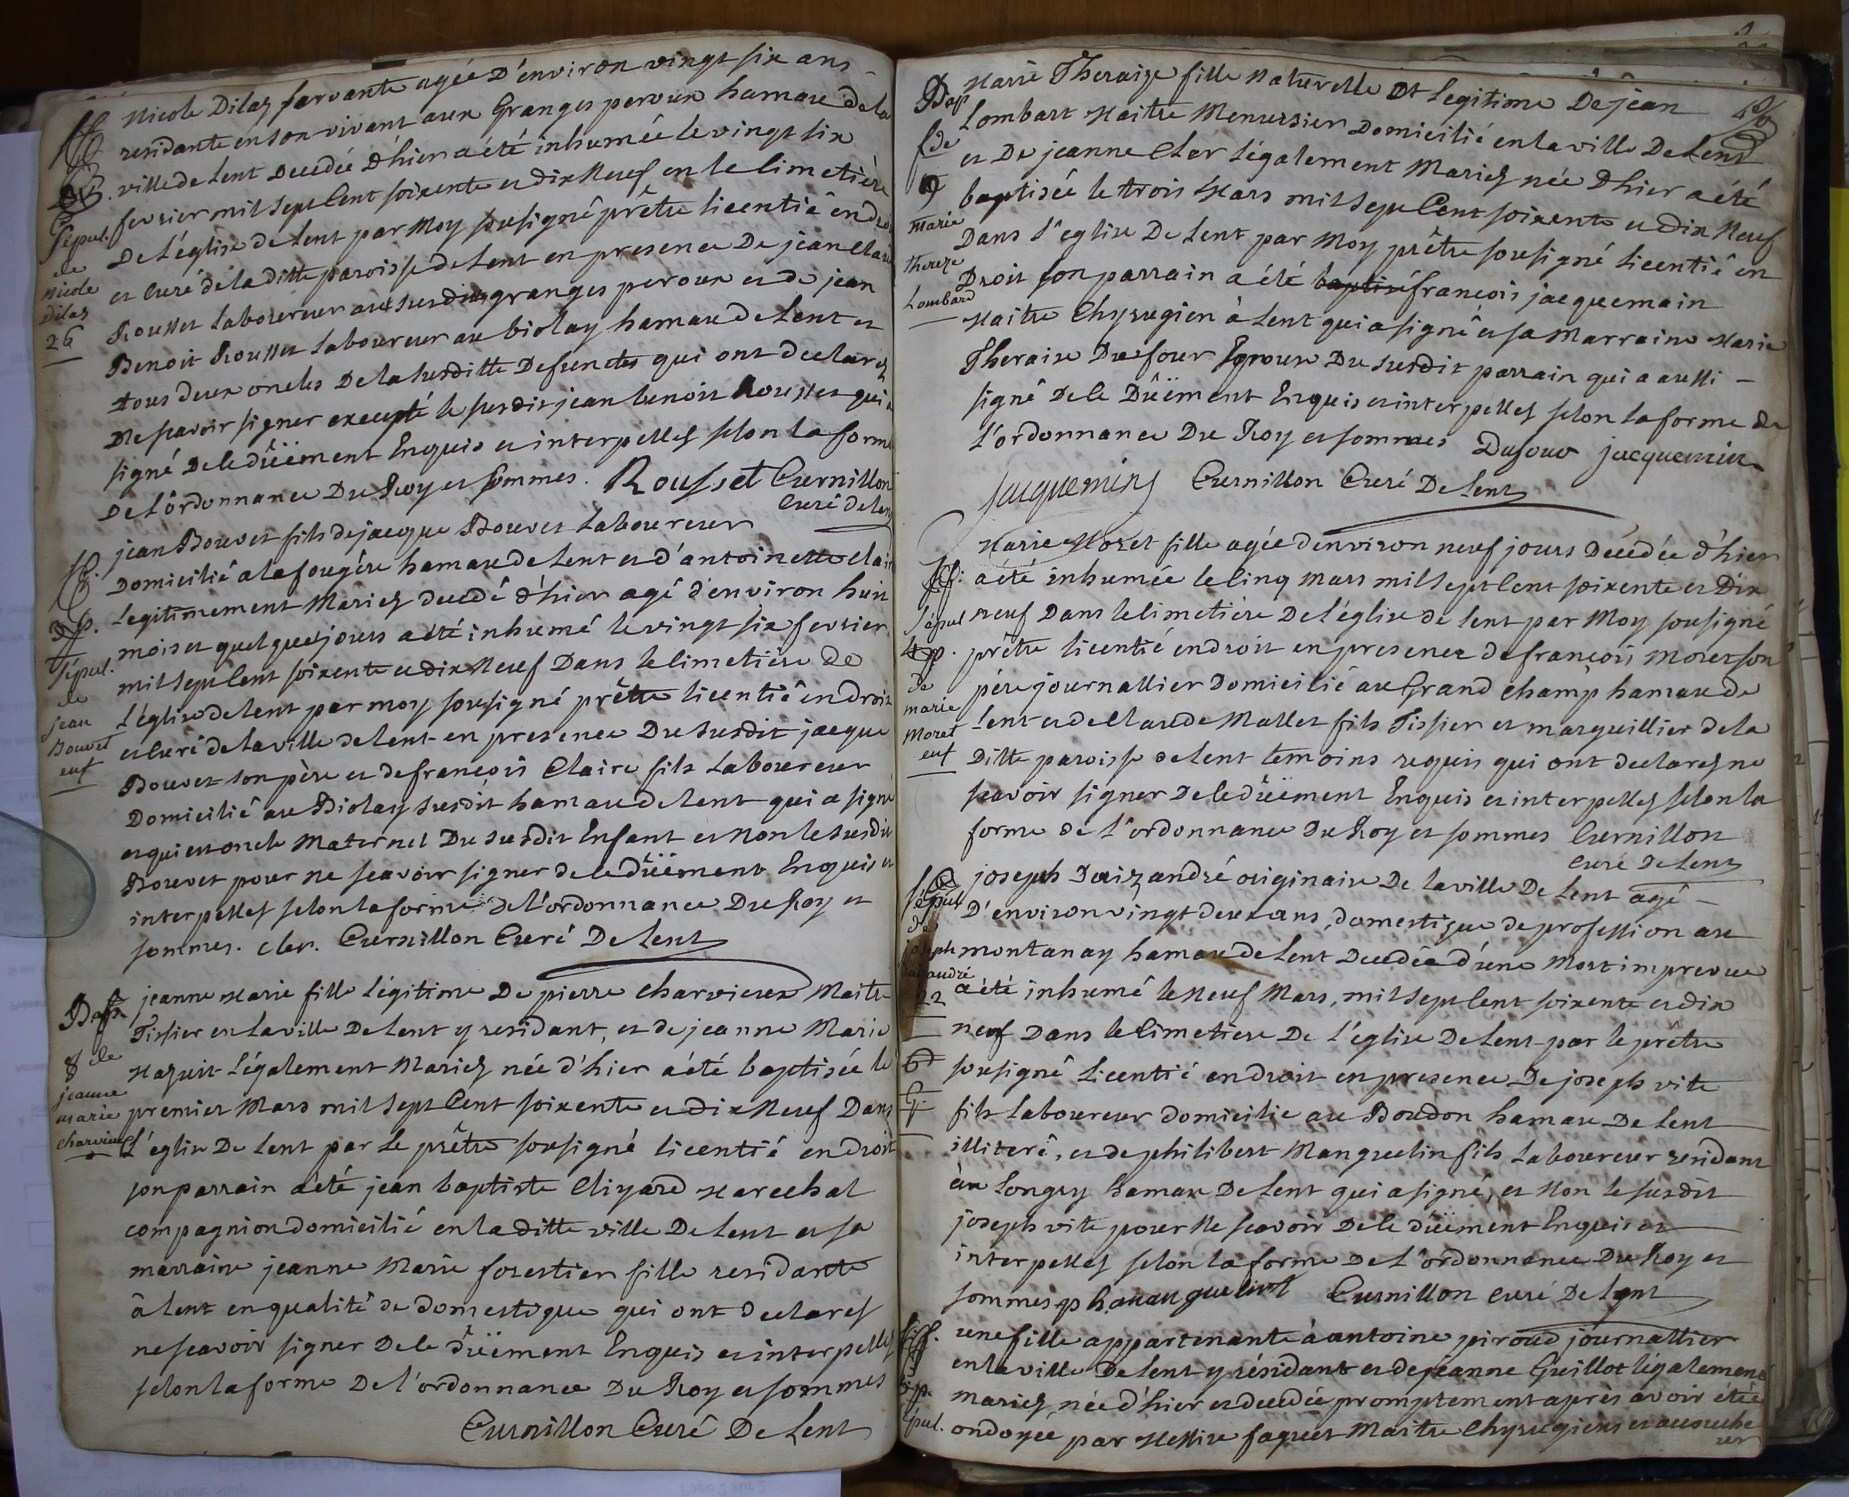 Nicole Dilaz servante agée D'environ vingt six ans
residante en son vivant aux Granges peroux hamau de la
ville de Lent Decedée d'hier a été inhumée le vingt six
fevrier mil sept Cent soixente et dix Neuf en le Cimetière
De L'église de Lent par Moy sousigné prêtre licentié en dro
et Curé de la ditte paroisse de Lent en presence De jean Clau
Rousset Laboureur aux susdits granges peroux et de jean
Benoit Rousset Laboureur au biolay hamau de Lent et
tous deux oncles De la susditte Defuncte qui ont declarez
Ne scavoir signer excepté le susdit jean benoit Rousset qui a
signé De le düement Enquis et interpellez selon la forme
De L'ordonnance Du Roy et sommes. Rousset Curnillon
Curé de Lent
Sépul.
de
Nicole
Dilaz
26
jean Bouvet fils de jacque Bouvet Laboureur
Domicilié a la fougère hamau de Lent et d'antoinette Clair
Legitimement Mariez decedé d'hier agé d'environ huit
mois et quelques jours a été inhumé le vingt six fevrier
mil sept Cent soixente et dix Neuf Dans le Cimetière de
L'église de Lent par moy sousigné prêtre licentié en droit
et Curé de la ville de Lent en presence Du susdit jacque
Bouvet son père et de françois Claire fils Laboureur
Domicilié au Biolay susdit hamau de Lent qui a signé
et qui est oncle Maternel Du susdit Enfant et Non le susdit
Bouvet pour ne scavoir signer de le düement Enquis et
interpellez selon la forme de L'ordonnance Du Roy et
sommes. cler. Curnillon Curé De Lent
Sépul.
de
jean
Bouvet
enf
jeanne Marie fille Légitime De pierre Charvieux Maitre
Tissier en la ville De Lent y residant, et de jeanne Marie
Légalement Mariez née d'hier a été baptisée le
premier Mars mil sept Cent soixente et dix Neuf Dans
L'église De Lent par Le prêtre sousigné licentié en droit
son parrain a été jean baptiste Marechal
compagnion domicilié en la ditte ville De Lent et sa
marraine jeanne Marie forestier fille residante
à Lent en qualité de domestique qui ont declarez
ne scavoir signer De le düement Enquis et interpellez
selon la forme De L'ordonnance Du Roy et sommes
Curnillon Curé De Lent
Bap.
8 de
jeanne
marie
Charvieux
Marie Theraize fille Naturelle Et Legitime De jean
Lombart Maitre Menussier Domicilié en la ville De Lent
et De jeanne Cler Légalement Mariez née d'hier a été
baptisée le trois Mars mil sept Cent soixente et dix Neuf
Dans L'eglise De Lent par Moy prêtre sousigné licentié en
Droit son parrain a été baptisé françois jacquemain
Maitre Chyrugien à Lent qui a signé et sa Marraine Marie
Theraise Dufour Epouse Du susdit parrain qui a aussi
signé De le Düement Enquis et interpellez selon la forme de
L'ordonnance Du Roy et sommes Dufour jacquemin
jacquemin Curnillon Curé De Lent
Bap.
de
9
marie
thereze
Lombard
Marie Moret fille agée d'environ neuf jours Decedée d'hier
a été inhumée le Cinq Mars mil sept Cent soixente et Dix
neuf Dans le Cimetière De L'église de Lent par Moy sousigné
prêtre licentié en droit en presence de françois Moret son
père journallier Domicilié au Grand champ hamau de
Lent et de Claude Mallet fils Tissier et marguillier de la
Ditte paroisse de Lent temoins requis qui ont declarez ne
scavoir signer De le düement Enquis et interpellez selon la
forme de L'ordonnance Du Roy et sommes Curnillon
Curé De Lent
Sépul
de
marie
Moret
enf
joseph Daizandré originaire De la ville De Lent agé
D'environ vingt deux ans, domestique de profession au
montanay hamau de Lent Decedée d'une Mort imprevue
a été inhumé le Neuf Mars, mil sept Cent soixente et dix
neuf Dans le Cimetiere De L'église De Lent par le prêtre
sousigné Licentié en droit en presence De joseph vite
fils Laboureur domicilié au Boudon hamau De Lent
illiteré, et de philibert Manguelin fils Laboureur residant
au Longey hamau De Lent qui a signé, et Non le susdit
joseph vite pour Ne scavoir De le düement Enquis et
interpellez selon la forme De L'ordonnance Du Roy et
sommes Curnillon Curé De Lent
sépul
de
joseph
22
une fille appartenante à antoine piroud journallier
en la ville De Lent y résidant et de jeanne Guillot légalement
mariez, née d'hier et decedée promptement après avoir été
ondoyée par Messire Maitre Chyrugiens et accouche
ur
Sépul.